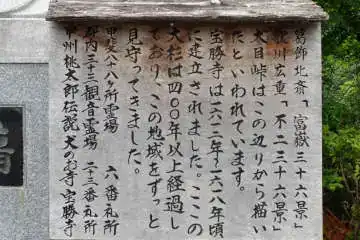 葛飾北斎「富嶽三十六景」
歌川宏重「不二三十六景」
犬目峠はこの辺りから描い
たといわれています。
宝勝寺は一六一二年～一六一八年頃
に建立されました。ここの
大杉は四〇〇年以上経過し
ており、この地域をずっと
見守ってきました。
甲斐八十八ケ所霊場 六番札所
郡内三十三観音霊場 二十三番札所
甲州桃太郎伝説 犬のお寺 宝勝寺